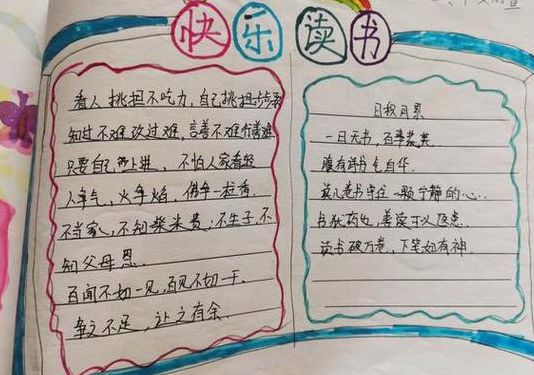 快乐读书
看人挑担不吃力，自己挑担步步
知过不难改过难，言善不难行善难
只要自己上进，不怕人家看轻
人争气，火争焰，佛争一炷香
不当家，不知柴米贵；不生子，不
知父母恩
百闻不如一见，百见不如一干。
争之不足，让之有余
日积月累
一日无书，百事荒芜
腹有诗书气自华
读几卷书守住一颗宁静的心
书犹药也，善读可以医愚
读书破万卷，下笔如有神